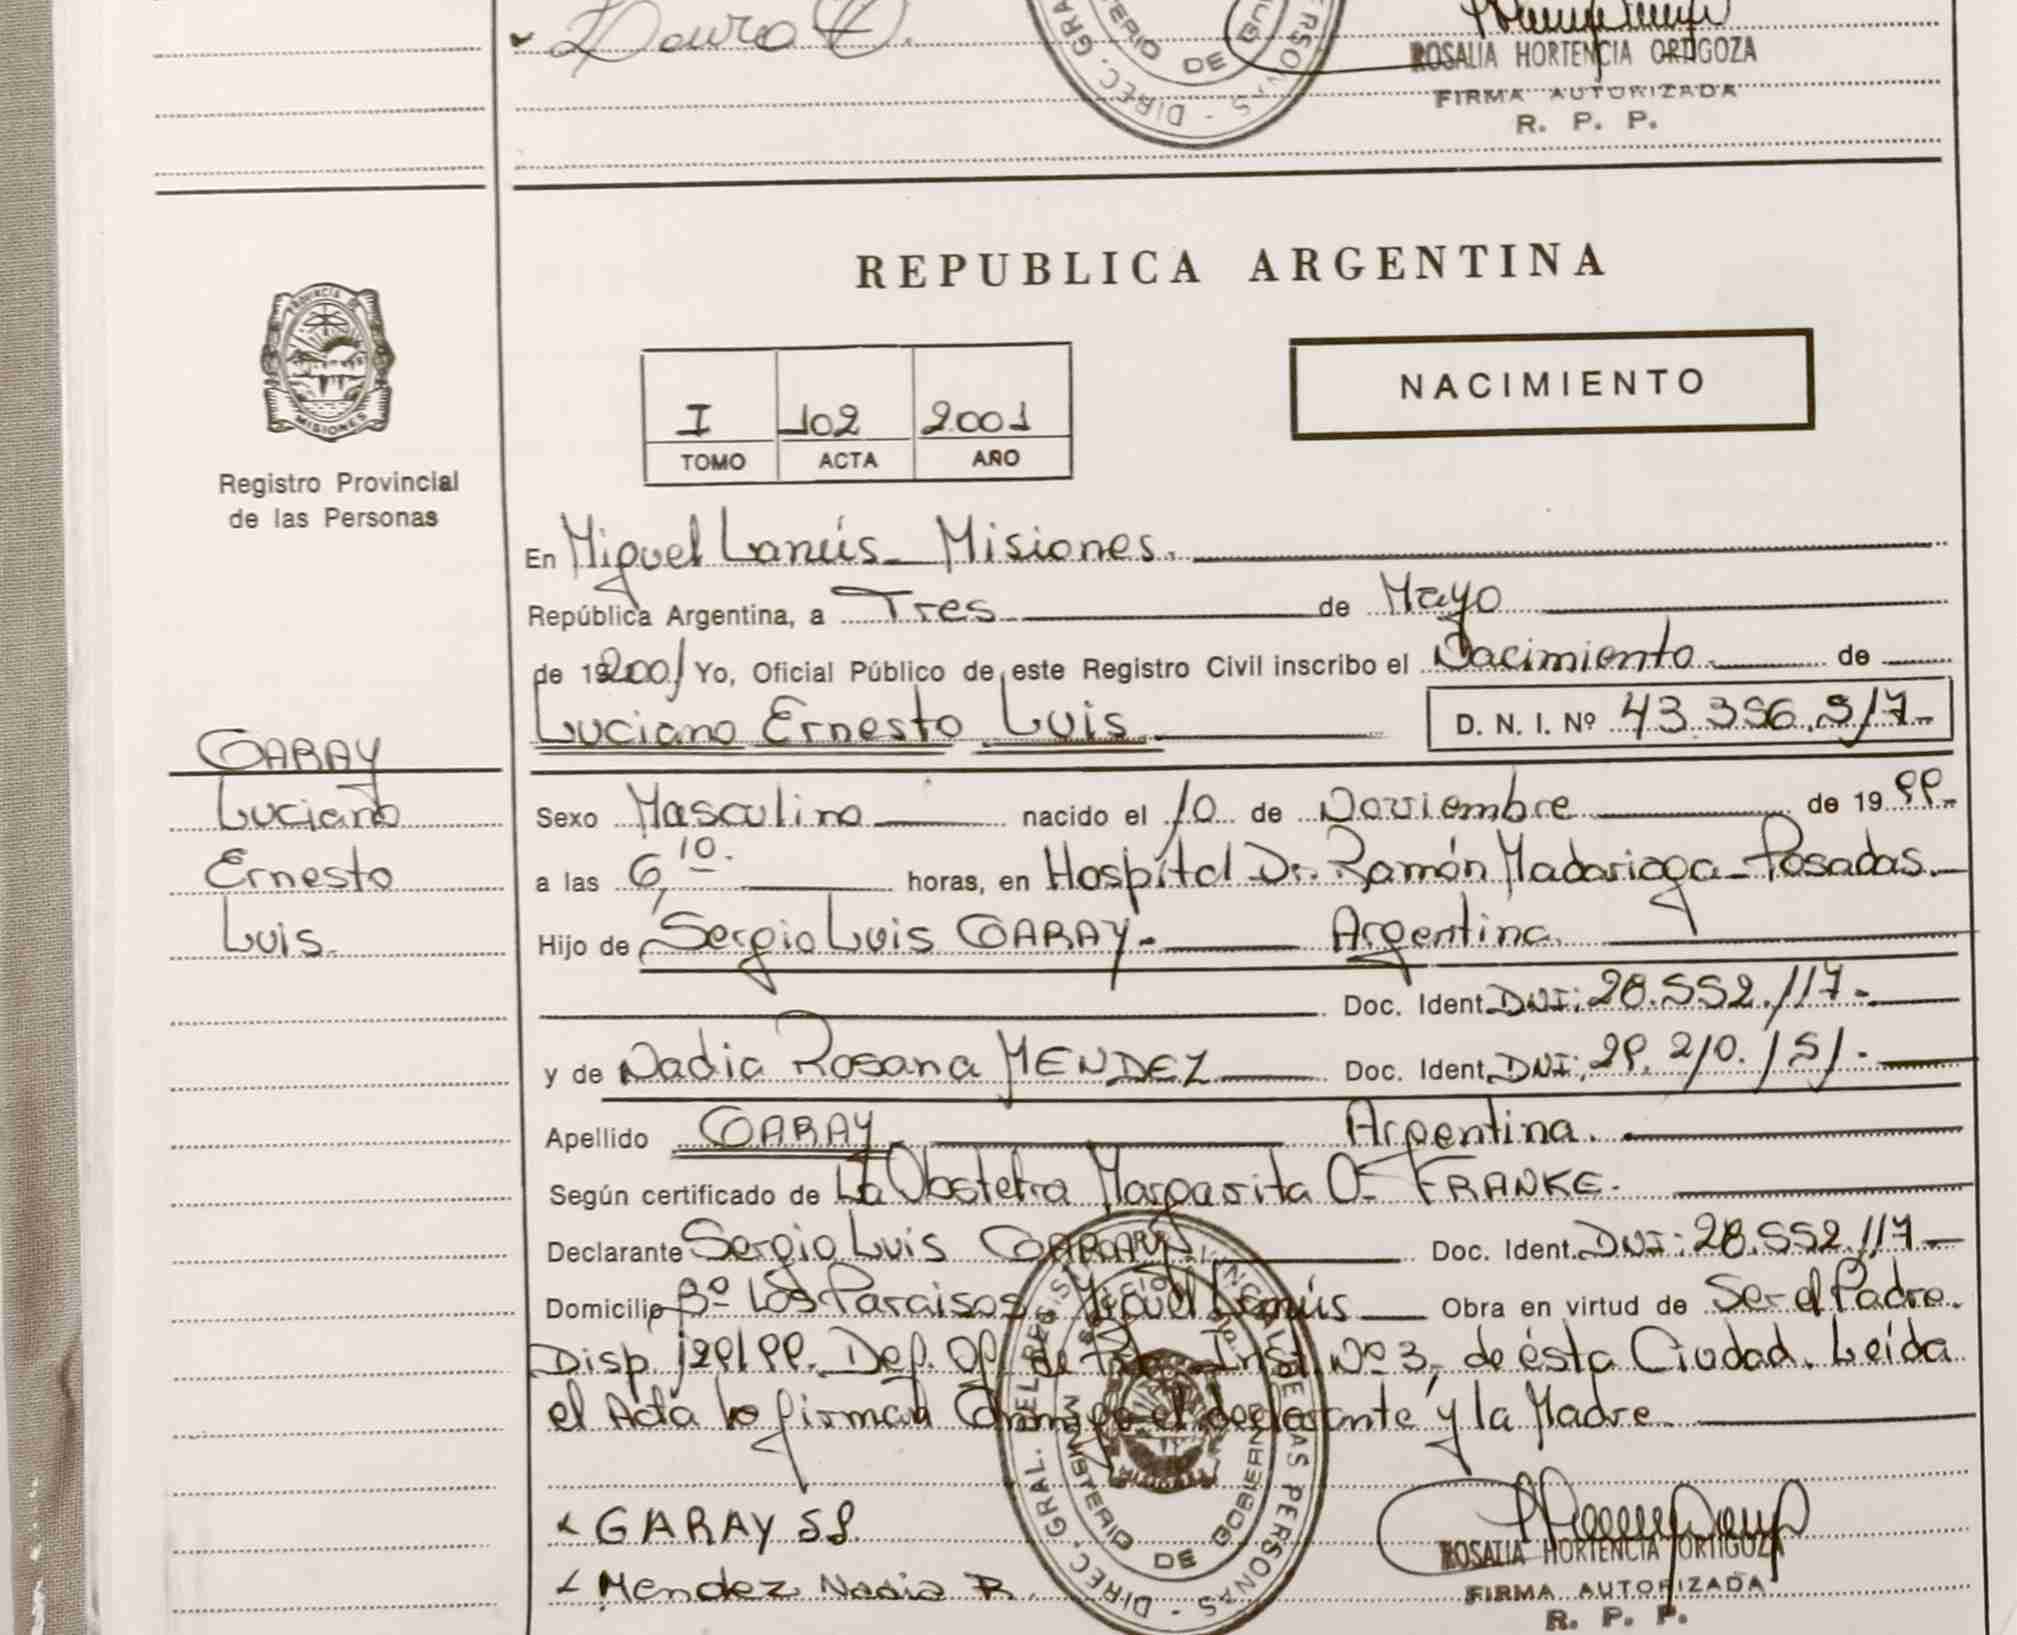 ROSALIA HORTENCIA ORTIGOZA
FIRMA AUTORIZADA
R. P. P.
DIREC. GRAL. PERSONAS - MINISTERIO DE
REPUBLICA ARGENTINA
PROVINCIA DE
MISIONES
Registro Provincial
de las Personas
I 102 2001
TOMO ACTA AÑO
NACIMIENTO
En Miguel Lanús - Misiones.
República Argentina, a Tres de Mayo
de 192001 Yo, Oficial Público de este Registro Civil inscribo el Nacimiento de
Luciano Ernesto Luis D. N. I. Nº 43.356.917-
GARAY
Luciano
Ernesto
Luis.
Sexo Masculino nacido el 10 de Noviembre de 1999-
a las 6,10. horas, en Hospital Dr. Ramón Madariaga - Posadas.-
Hijo de Sergio Luis GARAY - Argentina.
Doc. Ident. DNI: 28.552.117-
y de Nadia Rosana MENDEZ Doc. Ident. DNI: 29.210.151.-
Apellido GARAY - Argentina.
Según certificado de La Obstetra Margarita O- FRANKE.
Declarante Sergio Luis GARAY Doc. Ident. DNI: 28.552.117-
Domicilio Bº Los Paraisos, Miguel Lanús Obra en virtud de Ser el Padre.
Disp. 1291/99. Dep. Op. de Inst. Nº 3, de ésta Ciudad. Leída
el Acta la firman Conmigo el declarante y la Madre.
GARAY S L.
Mendez Nadia R.
DIREC. GRAL. DEL REGISTRO PROVINCIAL DE LAS PERSONAS - MINISTERIO DE GOBIERNO
ROSALIA HORTENCIA ORTIGOZA
FIRMA AUTORIZADA
R. P. P.